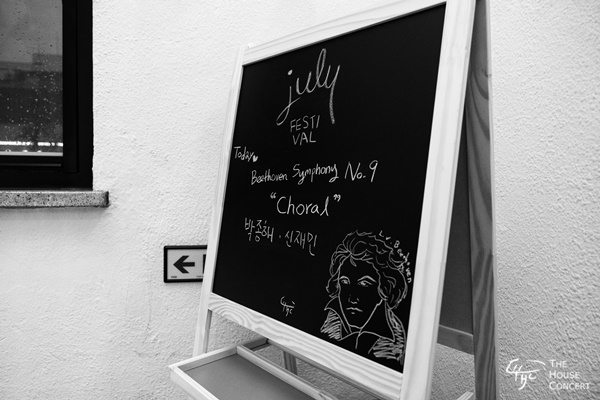 july
FESTI
VAL
Today
Beethoven Symphony No. 9
"Choral"
박종해 · 신재민
L. v. Beethoven
THE
HOUSE
CONCERT